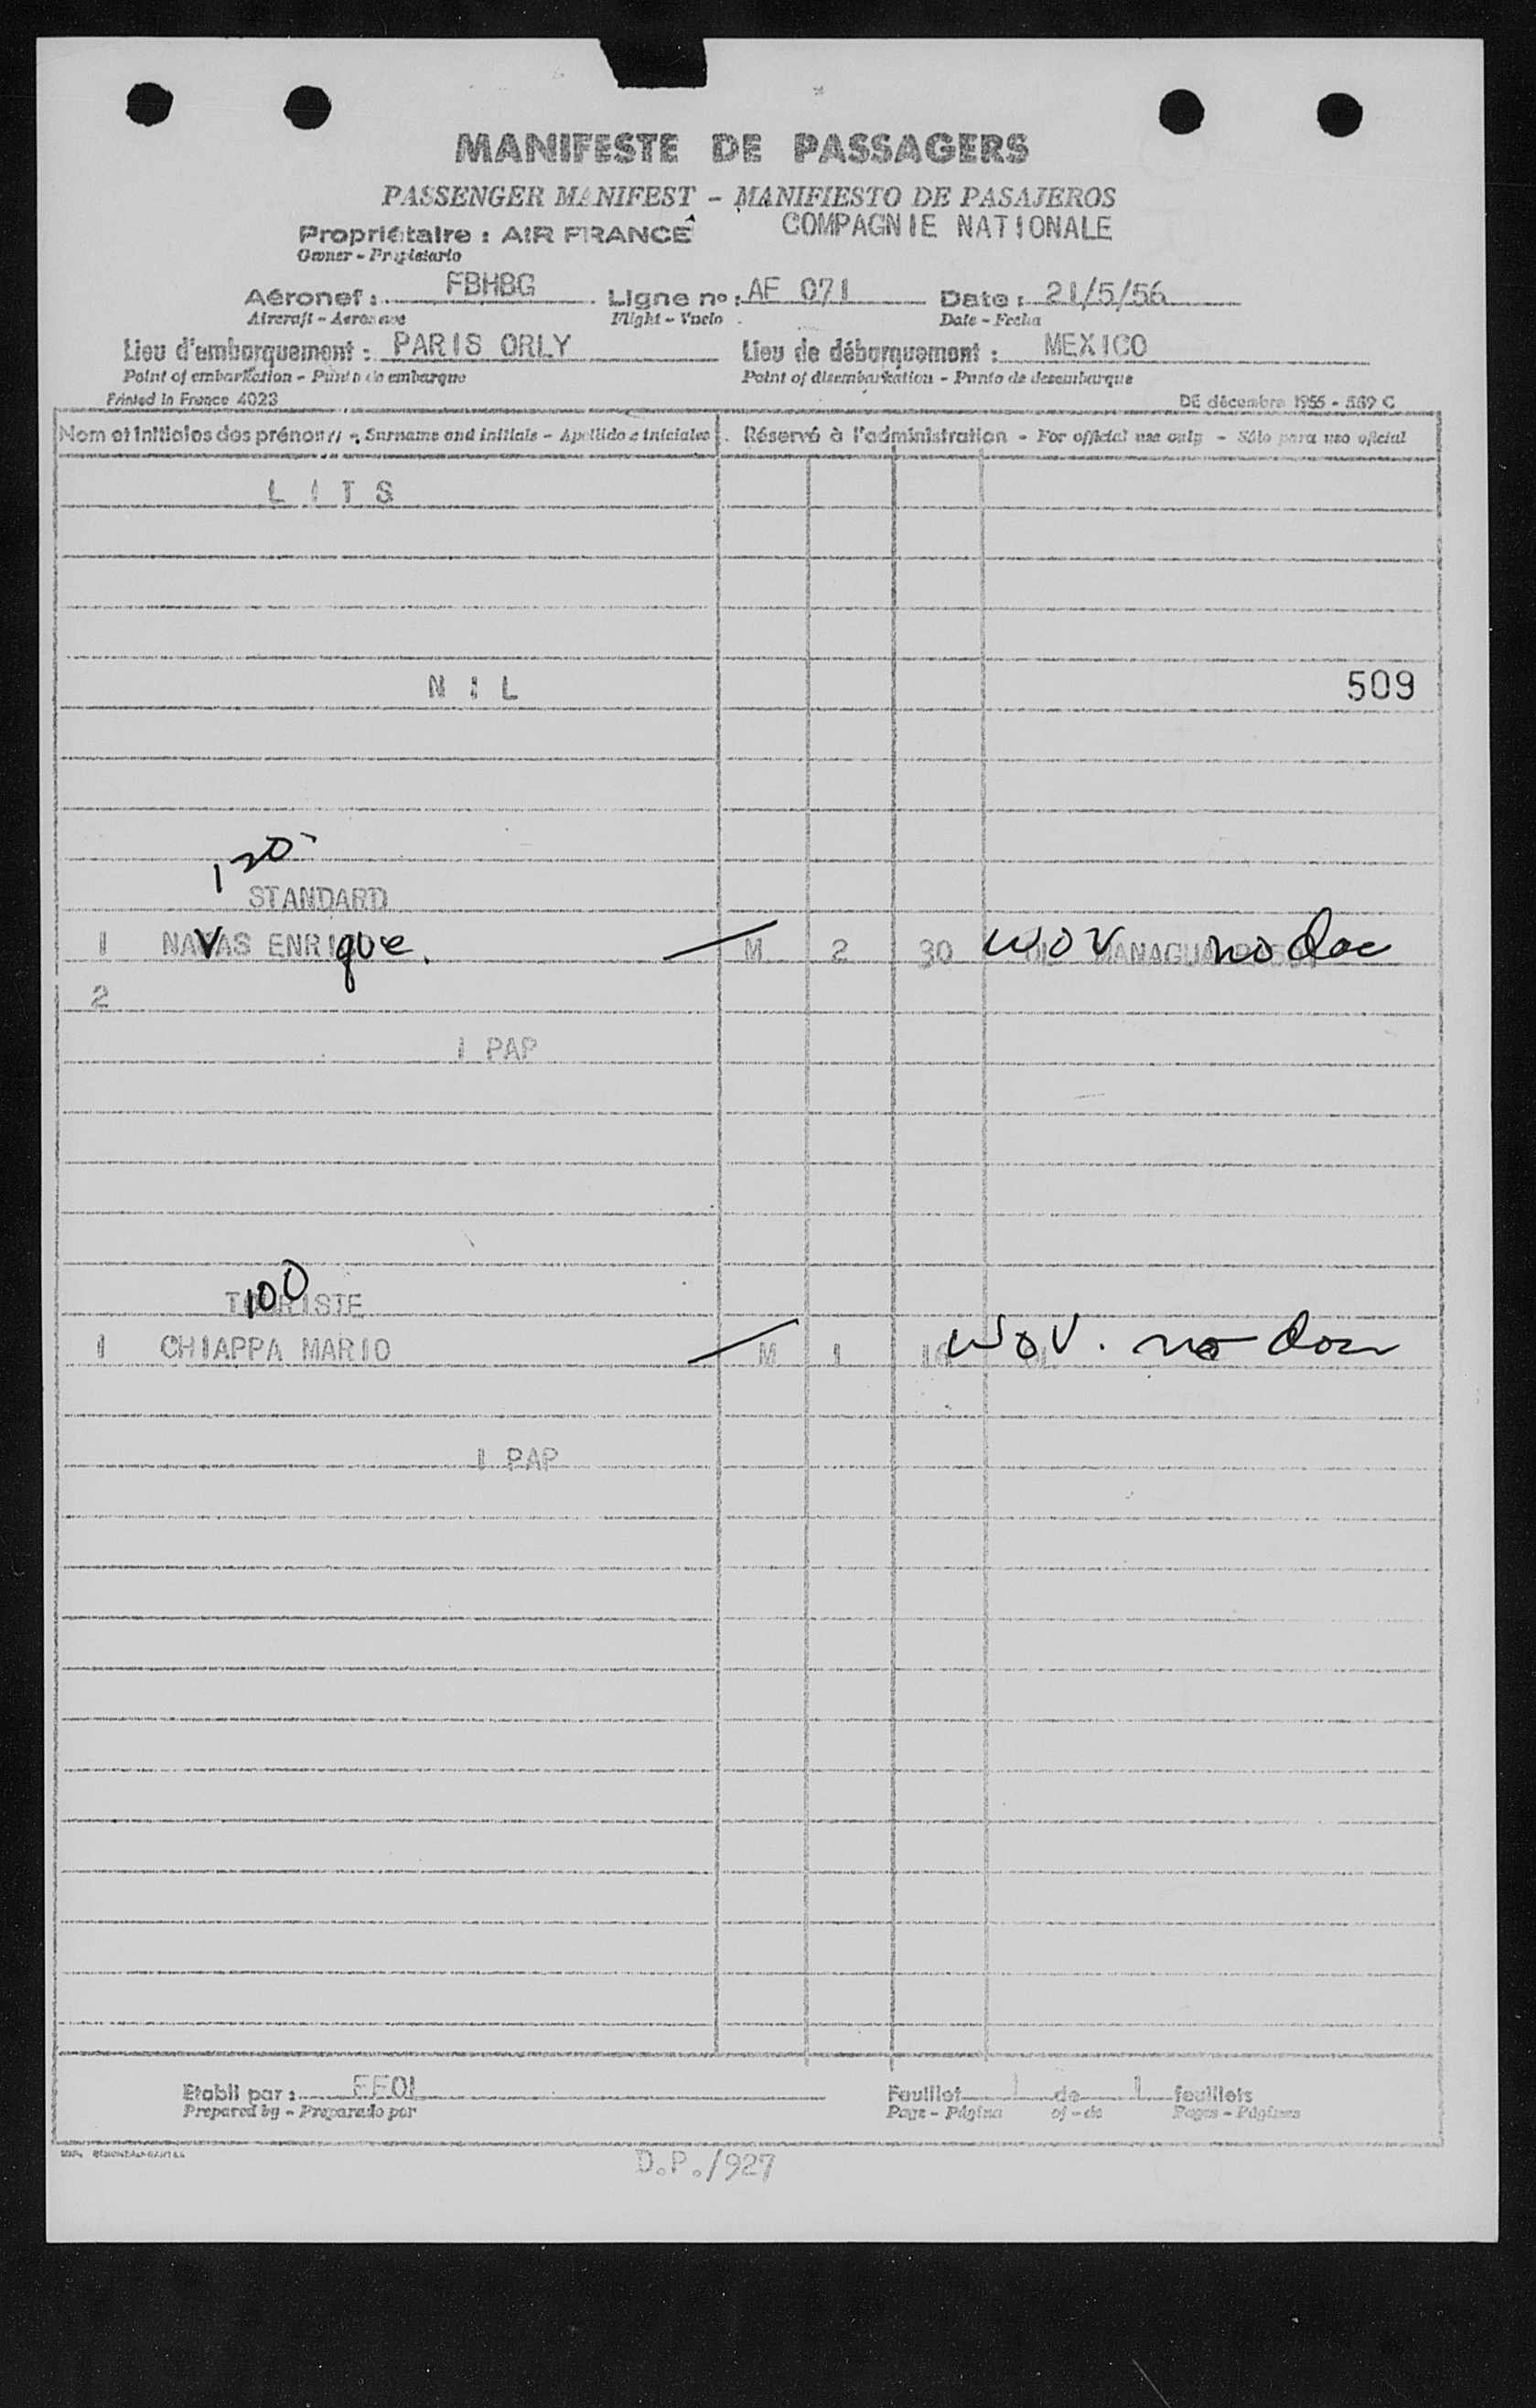 MANIFESTE DE PASSAGERS
PASSENGER MANIFEST - MANIFIESTO DE PASAJEROS
COMPAGNIE NATIONALE
Propriétaire : AIR FRANCE
Owner - Propietario
Aéronef : FBHBG Ligne no : AF 071 Date : 21/5/56
Aircraft - Aeronave Flight - Vuelo Date - Fecha
Lieu d'embarquement : PARIS ORLY Lieu de débarquement : MEXICO
Point of embarkation - Punto de embarque Point of disembarkation - Punto de desembarque
Printed in France 4023 DE décembre 1955 - 589 C
Nom et initiales des prénoms - Surname and initials - Apellido e iniciales Réservé à l'administration - For official use only - Sólo para uso oficial
L I T S
N I L 509
120
STANDARD
1 NAVAS ENRIque. M 2 30 WOV MANAGUA no doc
2
1 PAP
100
TOURISTE
1 CHIAPPA MARIO M 1 WOV. no doc
1 PAP
Etabli par : Feuillet 1 de 1 feuillets
Prepared by - Preparado por Page - Página of - de Pages - Páginas
D.P./927